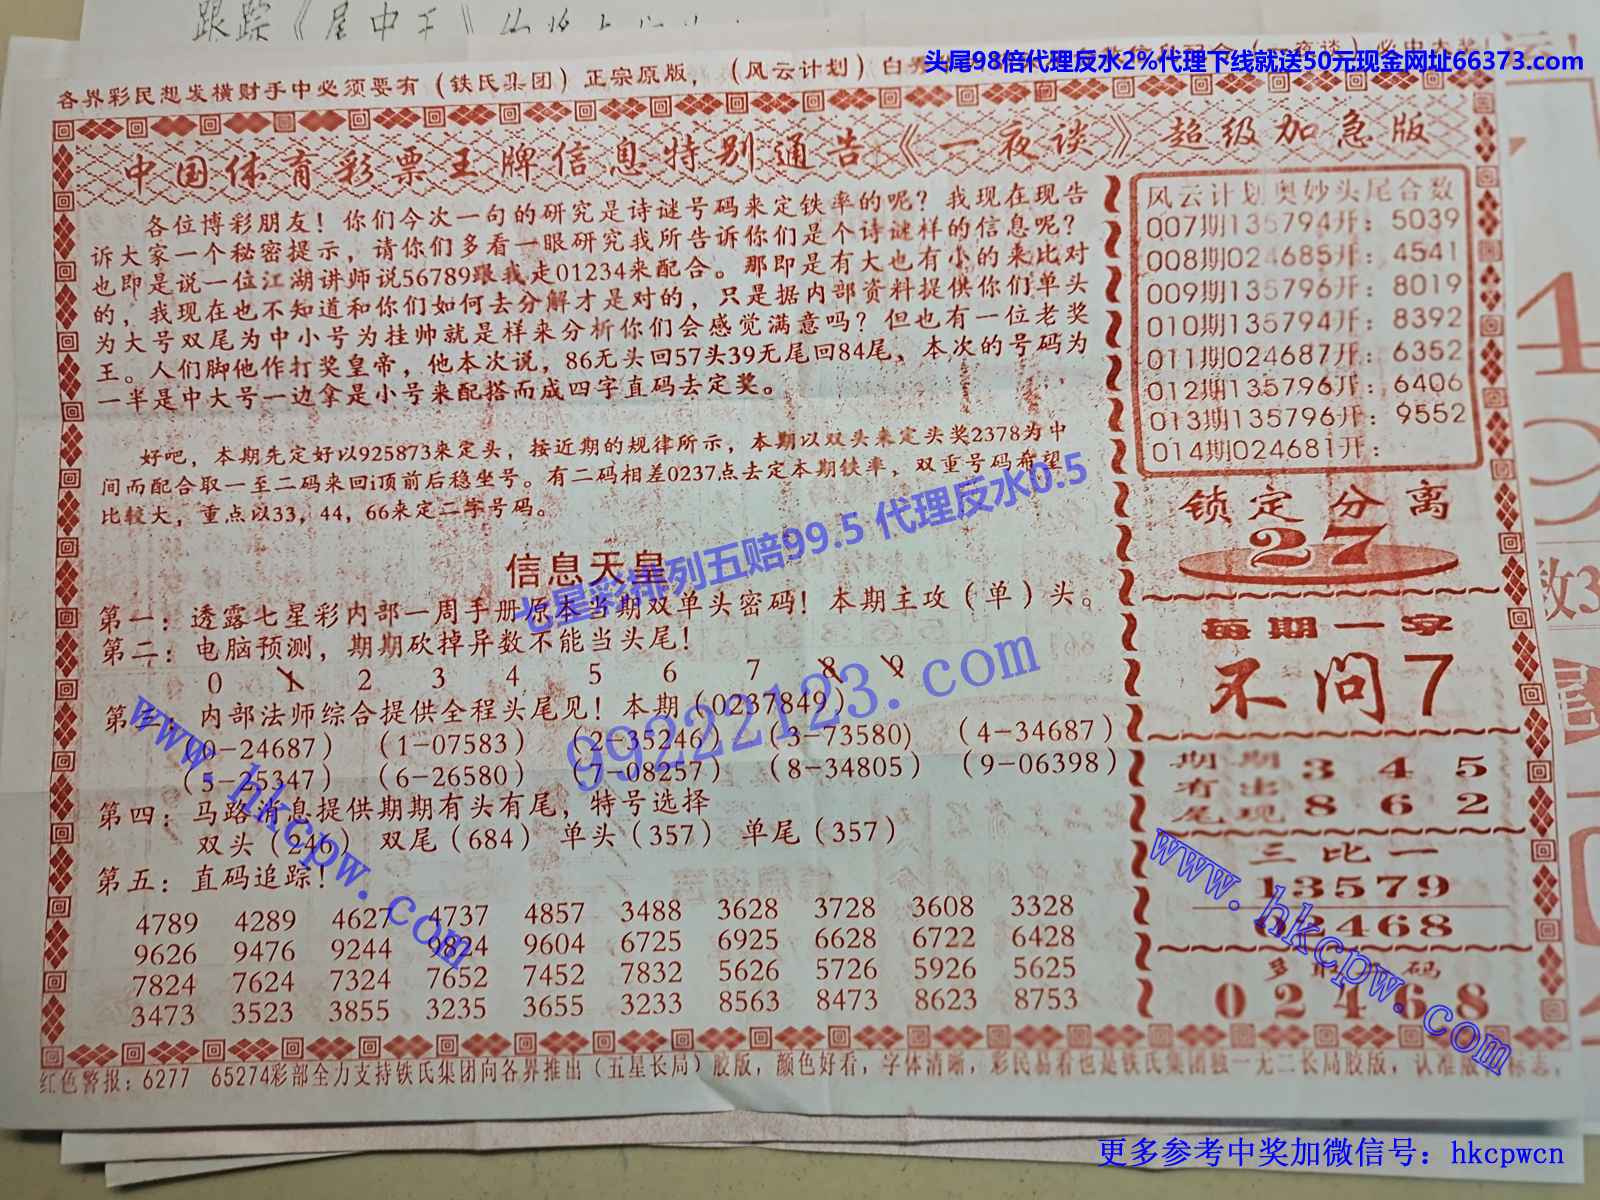 跟踪《尾中王》
头尾98倍代理反水2%代理下线就送50元现金网址66373.com
各界彩民想发横财手中必须要有（铁氏集团）正宗原版，（风云计划）
中国体育彩票王牌信息特别通告《一夜谈》超级加急版
各位博彩朋友！你们今次一句的研究是诗谜号码来定铁率的呢？我现在现告
诉大家一个秘密提示，请你们多看一眼研究我所告诉你们是个诗谜样的信息呢？
也即是说一位江湖讲师说56789跟我走01234来配合。那即是有大也有小的来比对
的，我现在也不知道和你们如何去分解才是对的，只是据内部资料提供你们单头
为大号双尾为中小号为挂帅就是样来分析你们会感觉满意吗？但也有一位老奖
王。人们脚他作打奖皇帝，他本次说，86无头回57头39无尾回84尾，本次的号码为
一半是中大号一边拿是小号来配搭而成四字直码去定奖。
好吧，本期先定好以925873来定头，按近期的规律所示，本期以双头来定头奖2378为中
间而配合取一至二码来回i顶前后稳坐号。有二码相差0237点去定本期铁率，双重号码希望
比较大，重点以33，44，66来定二字号码。
七星彩排列五赔99.5 代理反水0.5
信息天皇
第一：透露七星彩内部一周手册原本当期双单头密码！本期主攻（单）头。
第二：电脑预测，期期砍掉异数不能当头尾！
0 1 2 3 4 5 6 7 8 9
第三：内部法师综合提供全程头尾见！本期（0237849）
（0-24687）（1-07583）（2-35246）（3-73580)（4-34687）
（5-25347）（6-26580）（7-08257）（8-34805）（9-06398）
99222123.com
第四：马路消息提供期期有头有尾，特号选择
双头（246） 双尾（684） 单头（357） 单尾（357）
第五：直码追踪！
4789 4289 4627 4737 4857 3488 3628 3728 3608 3328
9626 9476 9244 9824 9604 6725 6925 6628 6722 6428
7824 7624 7324 7652 7452 7832 5626 5726 5926 5625
3473 3523 3855 3235 3655 3233 8563 8473 8623 8753
www.hkcpw.com
风云计划奥妙头尾合数
007期135794开：5039
008期024685开：4541
009期135796开：8019
010期135794开：8392
011期024687开：6352
012期135796开：6406
013期135796开：9552
014期024681开：
锁定分离
27
每期一字
不问7
期期 3 4 5
有出
尾现 8 6 2
三比一
13579
02468
多取码
02468
www.hkcpw.com
红色警报：6277 65274彩部全力支持铁氏集团向各界推出（五星长局）胶版，颜色好看，字体清晰，彩民易看也是铁氏集团独一无二长局胶版，认准版标志，
更多参考中奖加微信号：hkcpwcn